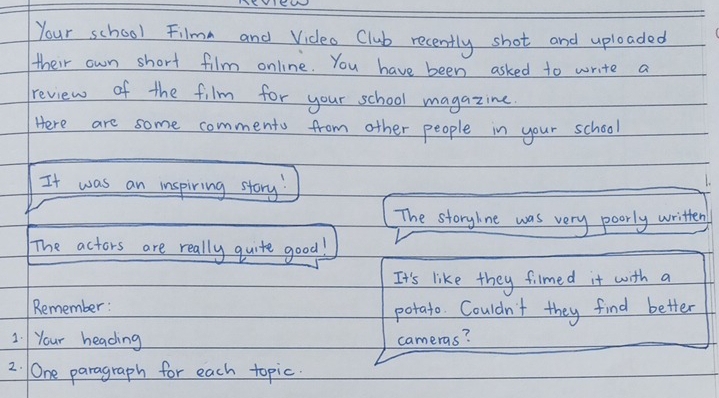 Review
Your school Film and Video Club recently shot and uploaded
their own short film online. You have been asked to write a
review of the film for your school magazine.
Here are some comments from other people in your school
It was an inspiring story!
The storyline was very poorly written
The actors are really quite good!
It's like they filmed it with a
potato. Couldn't they find better
cameras?
Remember:
1. Your heading
2. One paragraph for each topic.